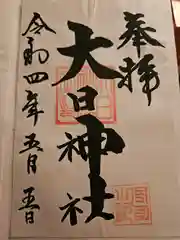 奉拝
大日神社
令和四年五月五日